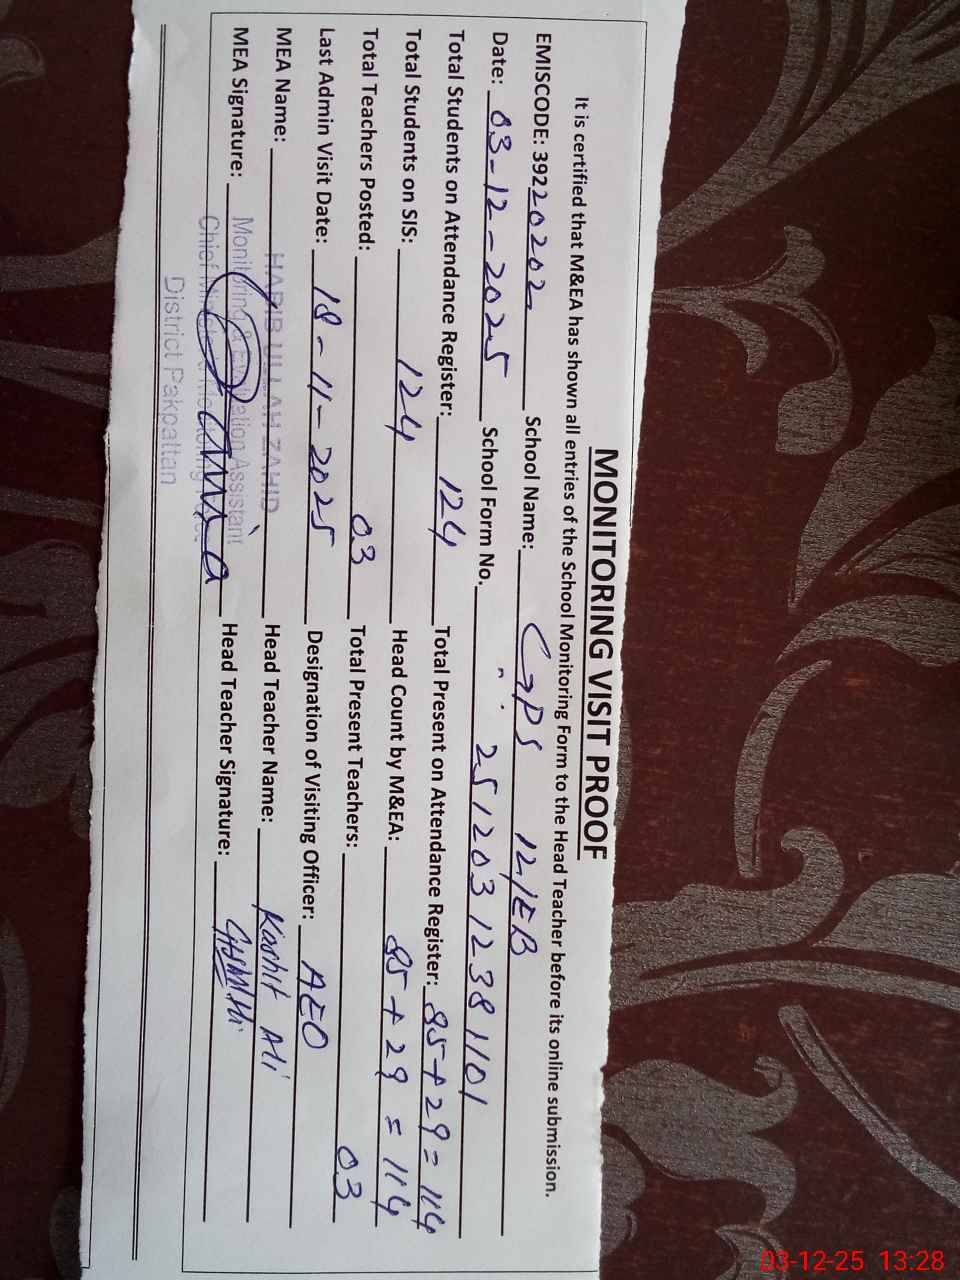 MONITORING VISIT PROOF
It is certified that M&EA has shown all entries of the School Monitoring Form to the Head Teacher before its online submission.
EMISCODE: 39220202 School Name: GPS 12/EB
Date: 03-12-2025 School Form No. 25120312381101
Total Students on Attendance Register: 124 Total Present on Attendance Register: 85+29=114
Total Students on SIS: 124 Head Count by M&EA: 85+29=114
Total Teachers Posted: 03 Total Present Teachers: 03
Last Admin Visit Date: 18-11-2025 Designation of Visiting Officer: AEO
MEA Name: HABIB ULLAH ZAHID Head Teacher Name: Kashif Ali
MEA Signature: Head Teacher Signature:
Monitoring & Evaluation Assistant
Chief Minister's Monitoring
District Pakpattan
03-12-25 13:28